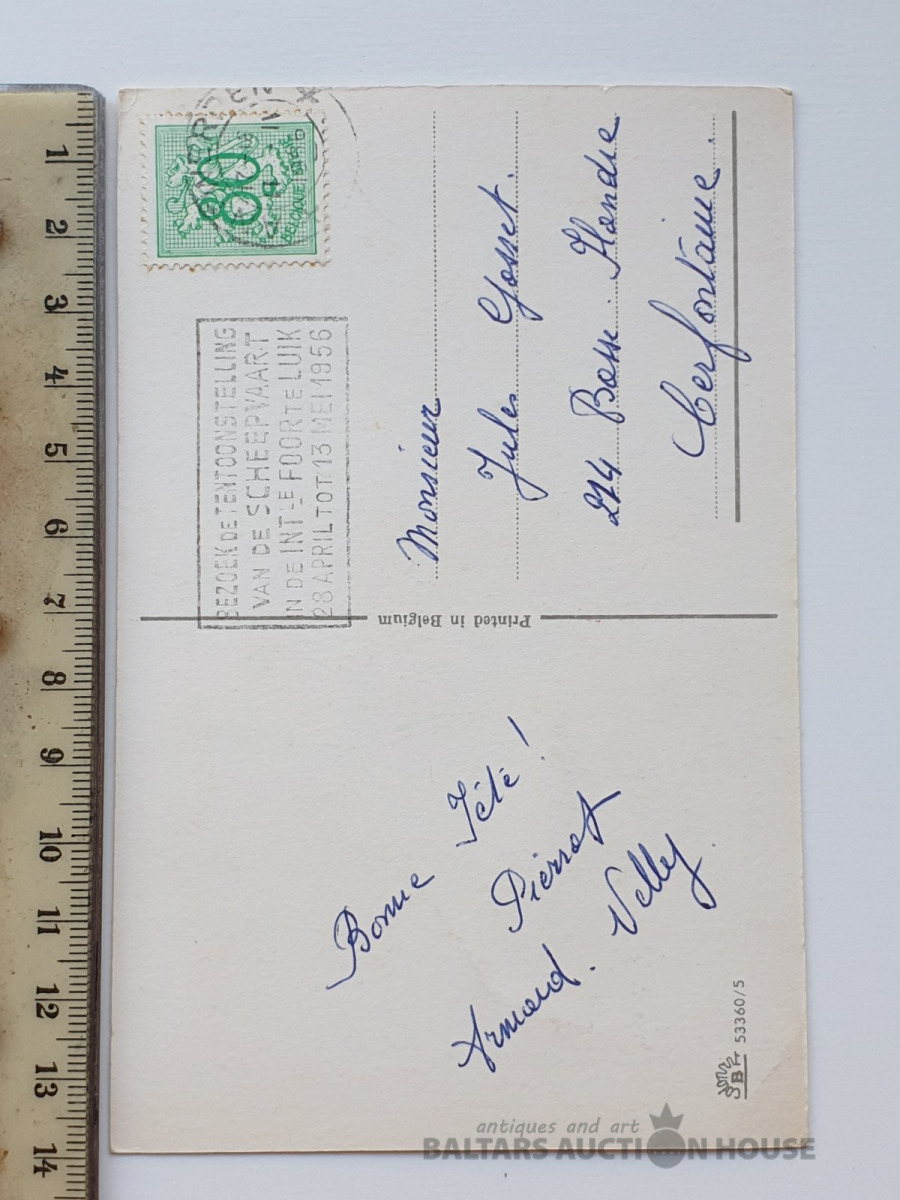 80
BELGIQUE BELGIË
BEZOEK DE TENTOONSTELLING
VAN DE SCHEEPVAART
IN DE INTLE FOOR TE LUIK
28 APRIL TOT 13 MEI 1956
Monsieur
Jules Gosset.
274
Cerfontaine.
Printed in Belgium
Bonne Fête!
Pierrot
Armand. Nelly.
53360/5
1
2
3
4
5
6
7
8
9
10
11
12
13
14
antiques and art
BALTARS AUCTION HOUSE